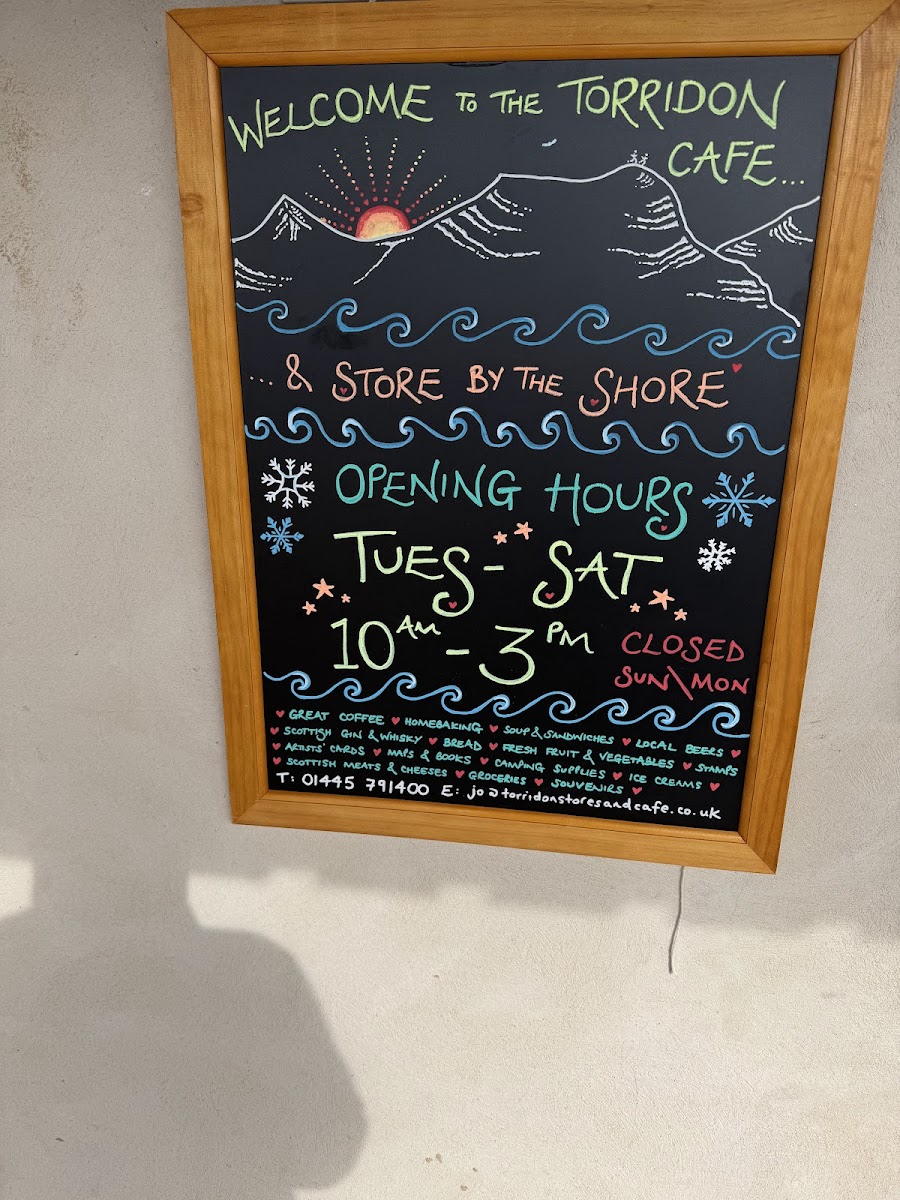 WELCOME TO THE TORRIDON
CAFE...
... & STORE BY THE SHORE
OPENING HOURS
TUES - SAT
10AM - 3PM
CLOSED
SUN\MON
GREAT COFFEE ♥ HOMEBAKING ♥ SOUP & SANDWICHES ♥ LOCAL BEERS ♥
SCOTTISH GIN & WHISKY ♥ BREAD ♥ FRESH FRUIT & VEGETABLES ♥ STAMPS
ARTISTS' CARDS ♥ MAPS & BOOKS ♥ CAMPING SUPPLIES ♥ ICE CREAMS ♥
SCOTTISH MEATS & CHEESES ♥ GROCERIES ♥ SOUVENIRS ♥
T: 01445 791400 E: jo@torridonstoresandcafe.co.uk